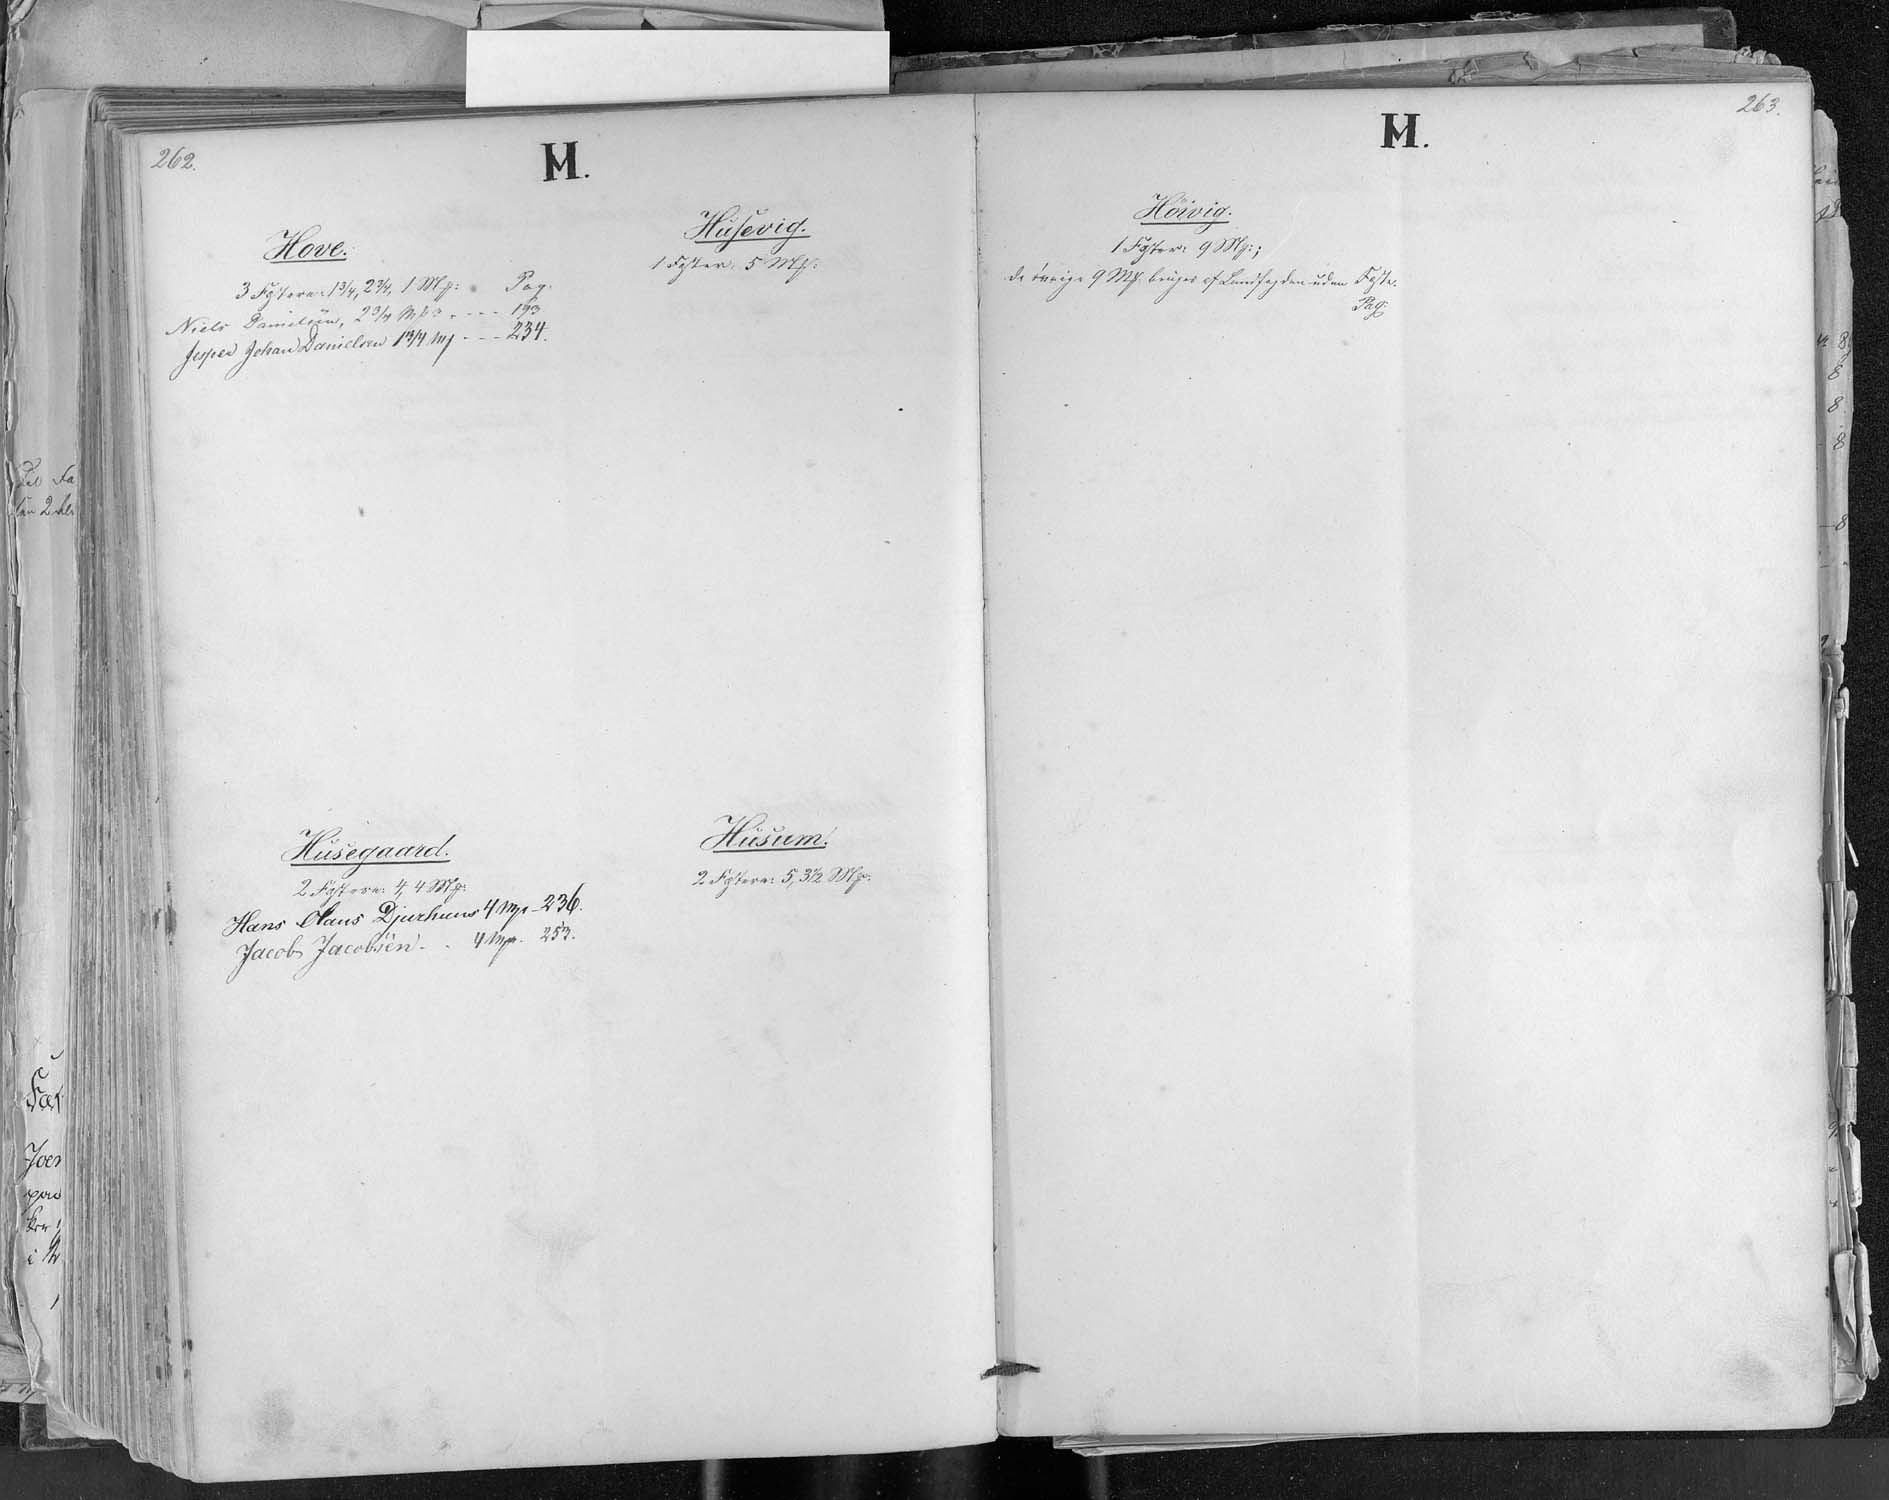 262.
H.
Hove.
3 Fæstere: 1 3/4, 2 3/4, 1 Mk: Pag.
Niels Danielsen, 2 3/4 Mk - - - - 193
Jesper Johan Danielsen 1 3/4 Mk - - - 234.
Husevig.
1 Fæster: 5 Mk:
Husegaard.
2 Fæstere: 4, 4 Mk:
Hans Claus Djurhuus 4 Mk - 236.
Jacob Jacobsen - . 4 Mk. 253.
Husum.
2 Fæstere: 5, 3 1/2 Mk:
263.
H.
Höivig.
1 Fæster: 9 Mk:;
de övrige 9 Mk. bruges af Landfogden uden Fæste.
Pag: